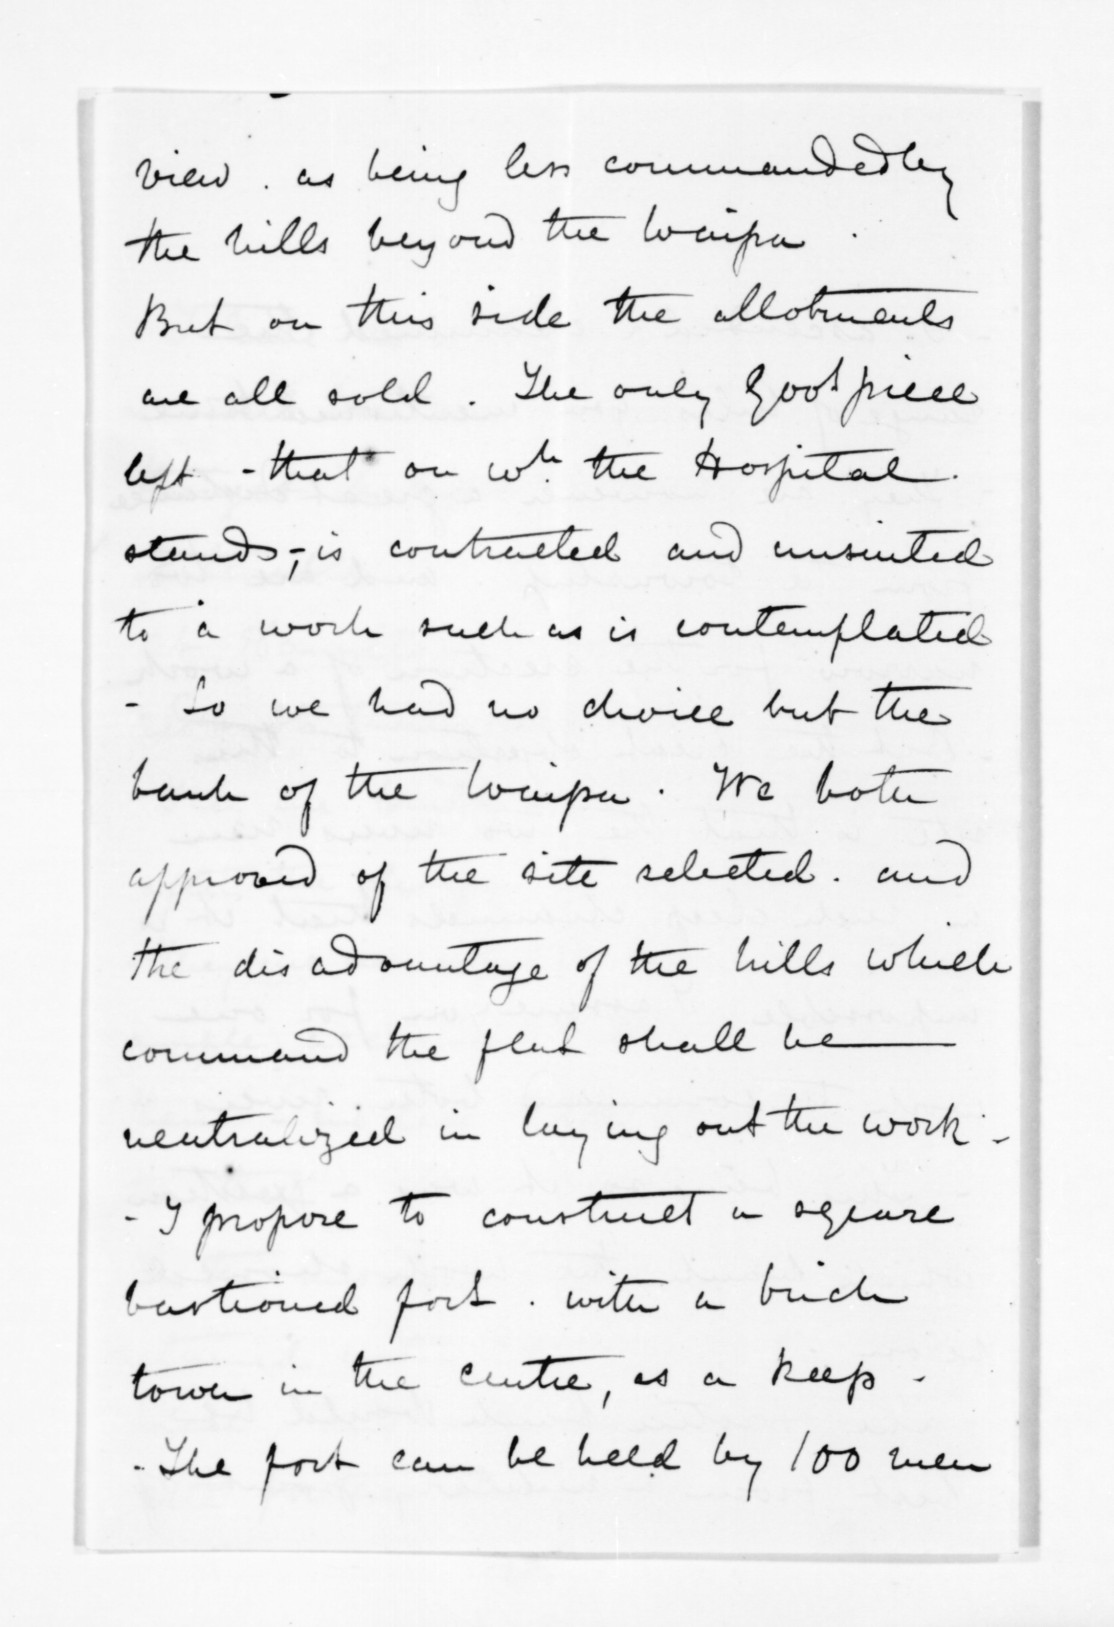 view. as being less commanded by
the hills beyond the Waipa.
But on this side the allotments
are all sold. The only Gov.t piece
left - that on wh. the Hospital.
stands,- is contracted and unsuited
to a work such as is contemplated
- So we had no choice but the
bank of the Waipa. We both
approved of the site selected. and
the disadvantage of the hills which
command the flat shall be
neutralized in laying out the work -
- I propose to construct a square
bastioned fort. with a brick
tower in the centre, as a keep -
- The fort can be held by 100 men